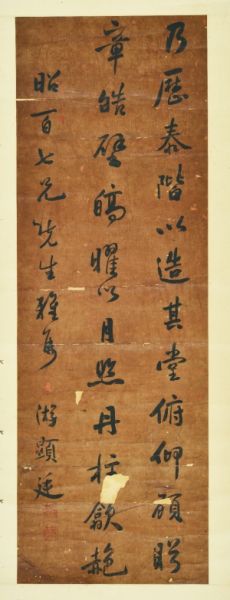 乃歷泰階以造其堂俯仰顧眄
章皓壁皜曜以月照丹柱歙赩
昭百七兄先生雅屬 游顯廷